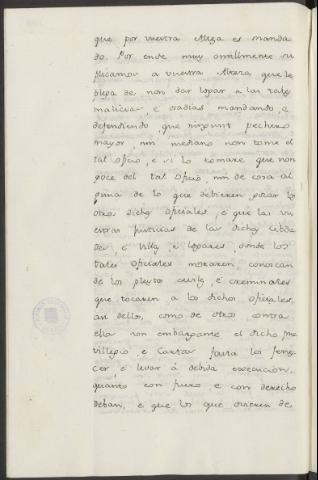 que por vuestra Alteza es manda
do. Por ende muy omillmente su
plicamos a vuestra Alteza, que le
plega de non dar logar a las tales
malicias, e osadias mandando, e
defendiendo que ningunt pechero
mayor, nin mediano non tome el
tal oficio, e si lo tomare que non
goce del tal oficio, nin de cosa al
guna de lo que debieren gozar los
otros dichos oficiales, e que las vu
estras justicias de las dichas cibda
des, e villas, e logares, donde los
tales oficiales moraren, conoscan
de los pleytos ceviles, e creminales
que tocaren a los dichos oficiales,
asi dellos, como de otros contra
ellos non embargante el dicho pre
villegio, e Cartas fasta los fenes
cer, e levar á debida execucion,
quanto con fuero, e con derecho
deban, e que los que ovieren de